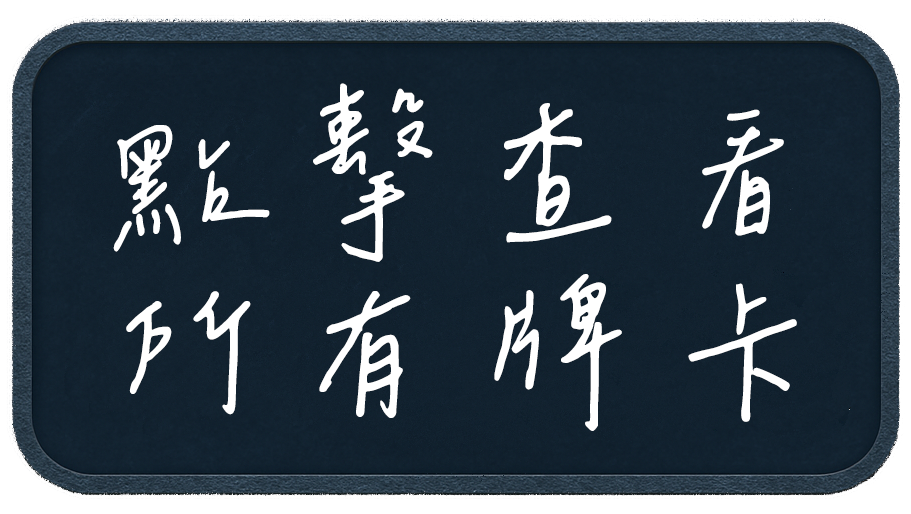 點擊查看
所有牌卡